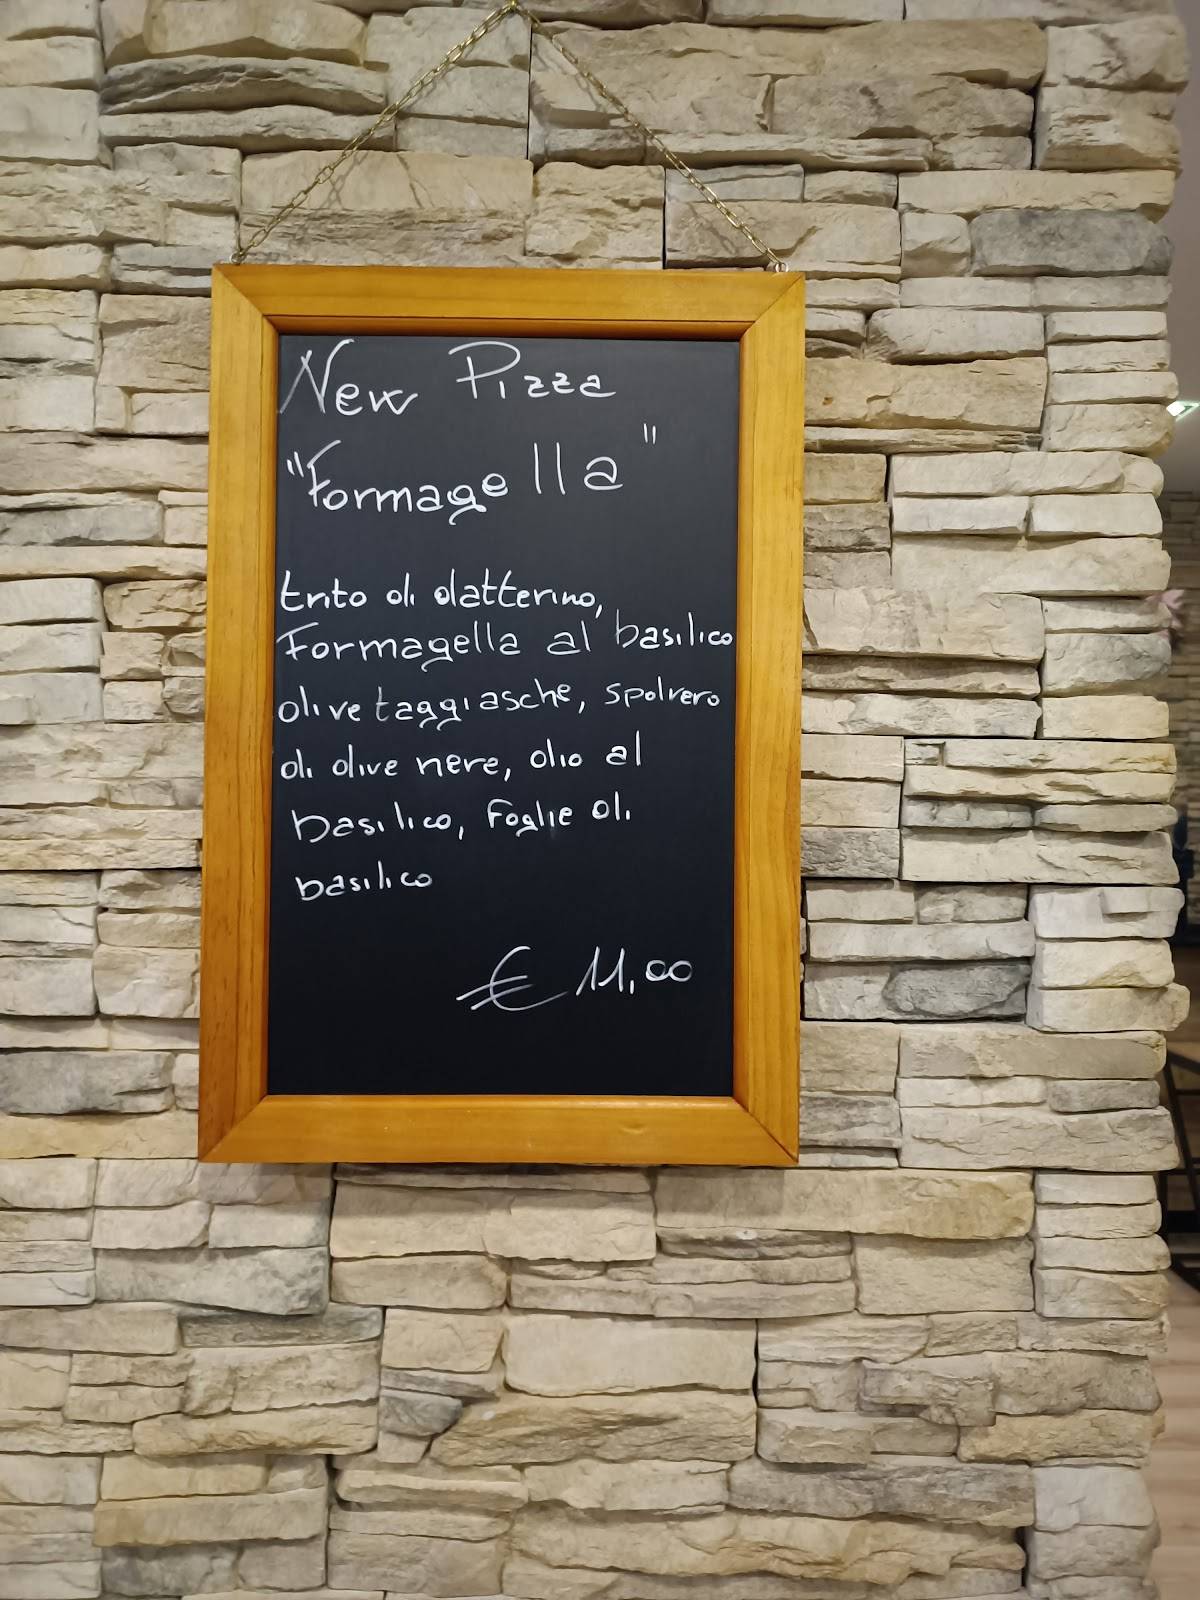 New Pizza
"Formagella"
trito di datterino,
Formagella al basilico
olive taggiasche, spolvero
di olive nere, olio al
basilico, foglie di
basilico
€ 11,00